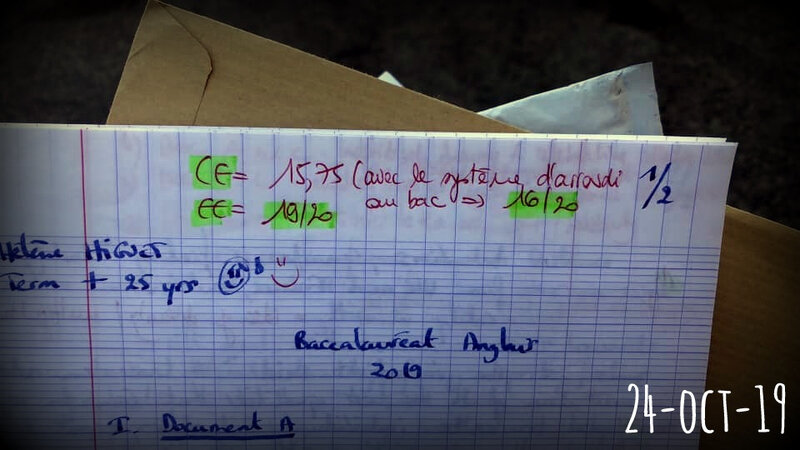 CE = 15,75 (avec le système d'arrondi
au bac => 16/20
EE = 19/20
1/2
Hélène HIGUET
Term + 25 yrs
Baccalauréat Anglais
2019
I. Document A
24-OCT-19